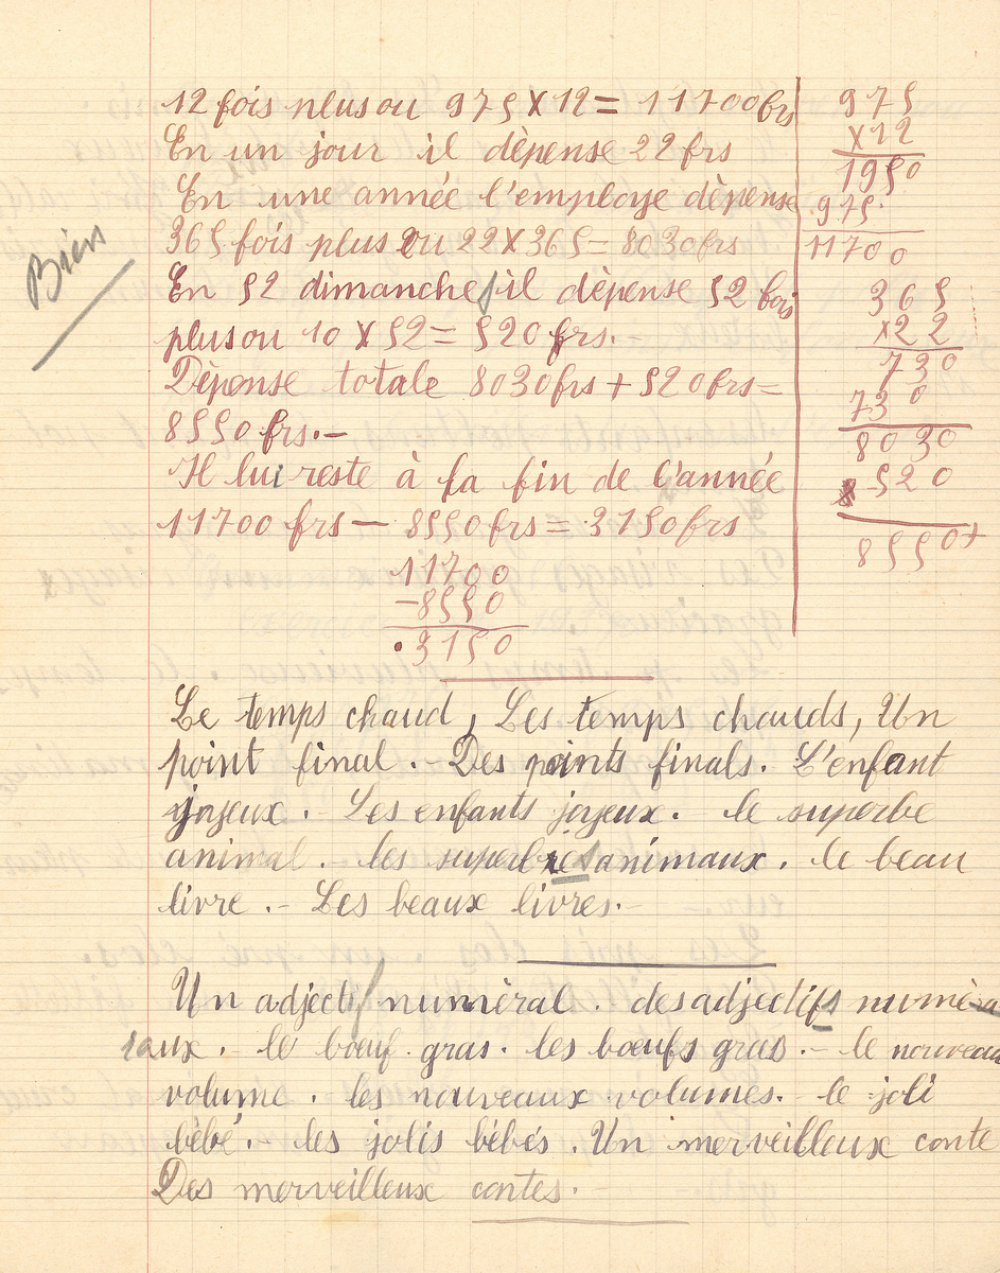 12 fois plus ou 975 X 12 = 11700 frs
En un jour il dèpense 22 frs
En une année l'employe dèpense
365 fois plus ou 22 X 365 = 8030 frs
Bien
En 52 dimanche, il dèpense 52 fois
plus ou 10 X 52 = 520 frs. -
Dèpense totale 8030 frs + 520 frs =
8550 frs. -
Il lui reste à la fin de l'année
11700 frs - 8550 frs = 3150 frs
11700
-8550
.3150
975
X12
1950
975.
11700
365
x22
730
730
8030
520
8550+
Le temps chaud, Les temps chauds, Un
point final. - Des points finals. L'enfant
joyeux. Les enfants joyeux. le superbe
animal. les superbes animaux. le beau
livre. - Les beaux livres. -
Un adjectif numèral. des adjectifs numèra
raux. le bœuf gras. les bœufs gras. - le nouveau
volume. les nouveaux volumes. le joli
bébé. - les jolis bébés. Un merveilleux conte
Des merveilleux contes.